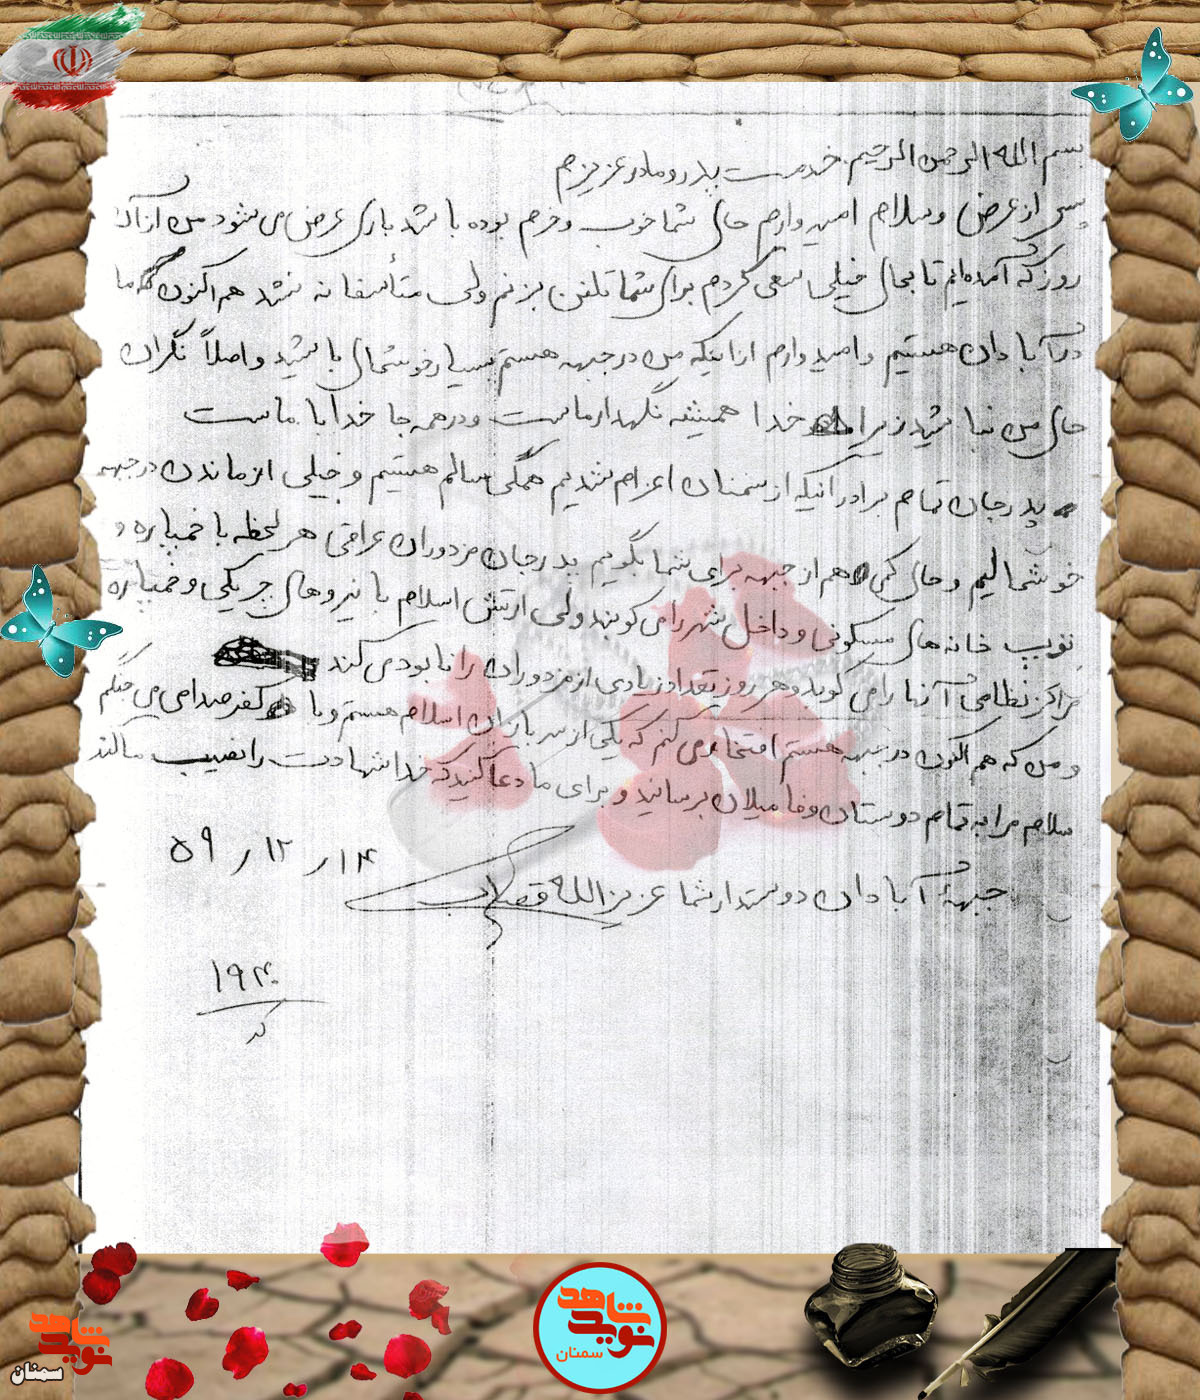 بسم الله الرحمن الرحیم خدمت پدر و مادر عزیزم
پس از عرض وسلام امیدوارم حال شما خوب و خرم بوده باشد باری عرض می شود من از آن
روز که آمده ایم تا بحال خیلی سعی کردم برای شما تلفن بزنم ولی متأسفانه نشد هم اکنون که ما
در آبادان هستیم و امیدوارم از اینکه من در جبهه هستم بسیار خوشحال باشید و اصلاً نگران
حال من نباشید زیرا خدا همیشه نگهدار ماست و در همه جا خدا با ماست
پدر جان تمام برادرانیکه از سمنان اعزام شدیم همگی سالم هستیم و خیلی از ماندن در جبهه
خوشحالیم و حال کمی هم از جبهه برای شما بگویم پدر جان مزدوران عراقی هر لحظه با خمپاره و
توپ خانه های مسکونی و داخل شهر را می کوبند ولی ارتش اسلام با نیروهای چریکی و خمپاره
مراکز نظامی آنها را می کوبد و هر روز تعداد زیادی از مزدوران را نابود می کند
و من که هم اکنون در جبهه هستم افتخار می کنم که یکی از سربازان اسلام هستم و با کفر صدامی می جنگم
سلام مرا به تمام دوستان و فامیلان برسانید و برای ما دعا کنید که خدا شهادت را نصیب ما کند
۱۴ / ۱۲ / ۵۹
جبههٔ آبادان دوستدار شما عزیزالله قصاب
۱۹۴۰
کد
نوید شاهد
سمنان
نوید شاهد
سمنان